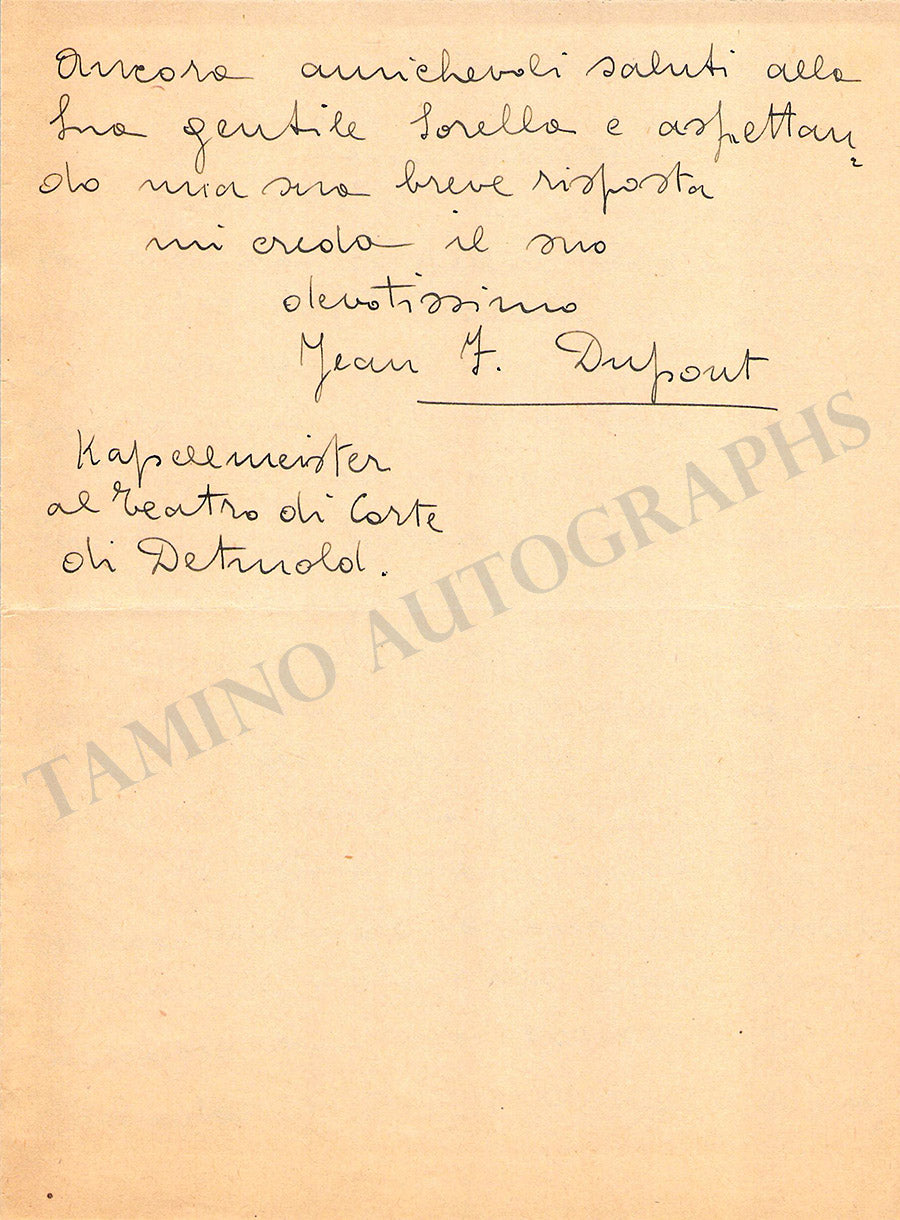 Ancora amichevoli saluti alla
Sua gentile Sorella e aspettan-
do una sua breve risposta
mi creda il suo
devotissimo
Jean F. Dupont
Kapellmeister
al Teatro di Corte
di Detmold.
TAMINO AUTOGRAPHS